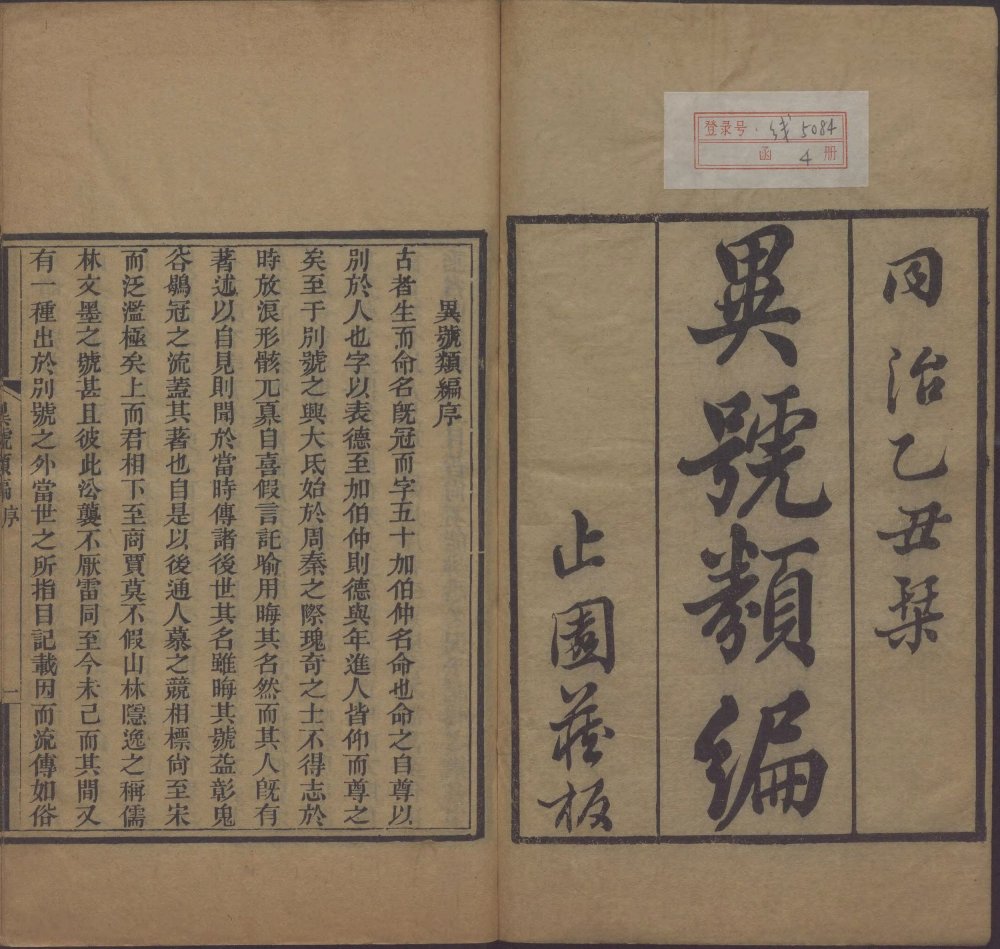 登录号. 线 5084
函 4 册
同治乙丑栞
異號類編
止園藏板
異號類編序
古者生而命名旣冠而字五十加伯仲名命也命之自尊以
別於人也字以表德至加伯仲則德與年進人皆仰而尊之
矣至于別號之興大氐始於周秦之際瑰奇之士不得志於
時放浪形骸兀槖自喜假言託喻用晦其名然而其人旣有
著述以自見則聞於當時傳諸後世其名雖晦其號益彰鬼
谷鶡冠之流蓋其著也自是以後通人慕之競相標尙至宋
而泛濫極矣上而君相下至商賈莫不假山林隱逸之稱儒
林文墨之號甚且彼此沿襲不厭雷同至今未已而其間又
有一種出於別號之外當世之所指目記載因而流傳如俗
異號類編 序
一